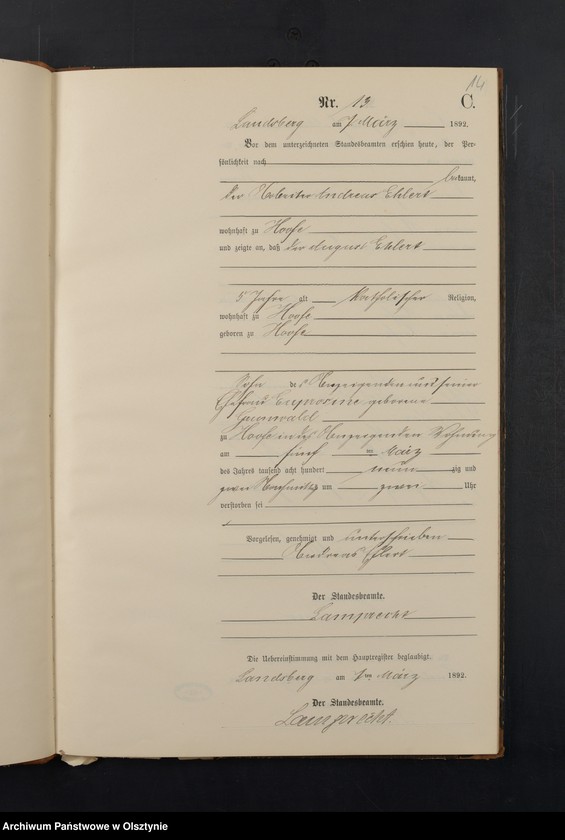 14
Nr. 13. C.
Landsberg am 7 März 1892.
Vor dem unterzeichneten Standesbeamten erschien heute, der Per-
sönlichkeit nach
bekannt,
der Arbeiter Andreas Ehlert
wohnhaft zu Hoofe
und zeigte an, daß der August Ehlert
5 Jahre alt katholischer Religion,
wohnhaft zu Hoofe
geboren zu Hoofe
Sohn des Anzeigenden und seiner
Ehefrau geborene
Grunwald
zu Hoofe in des Anzeigenden Wohnung
am fünf ten März
des Jahres tausend acht hundert neun zig und
zwei Nachmittag um zwei Uhr
verstorben sei
Vorgelesen, genehmigt und unterschrieben
Andreas Ehlert
Der Standesbeamte.
Lamprecht
Die Uebereinstimmung mit dem Hauptregister beglaubigt.
Landsberg am 7ten März 1892.
Der Standesbeamte.
Lamprecht.
Archiwum Państwowe w Olsztynie